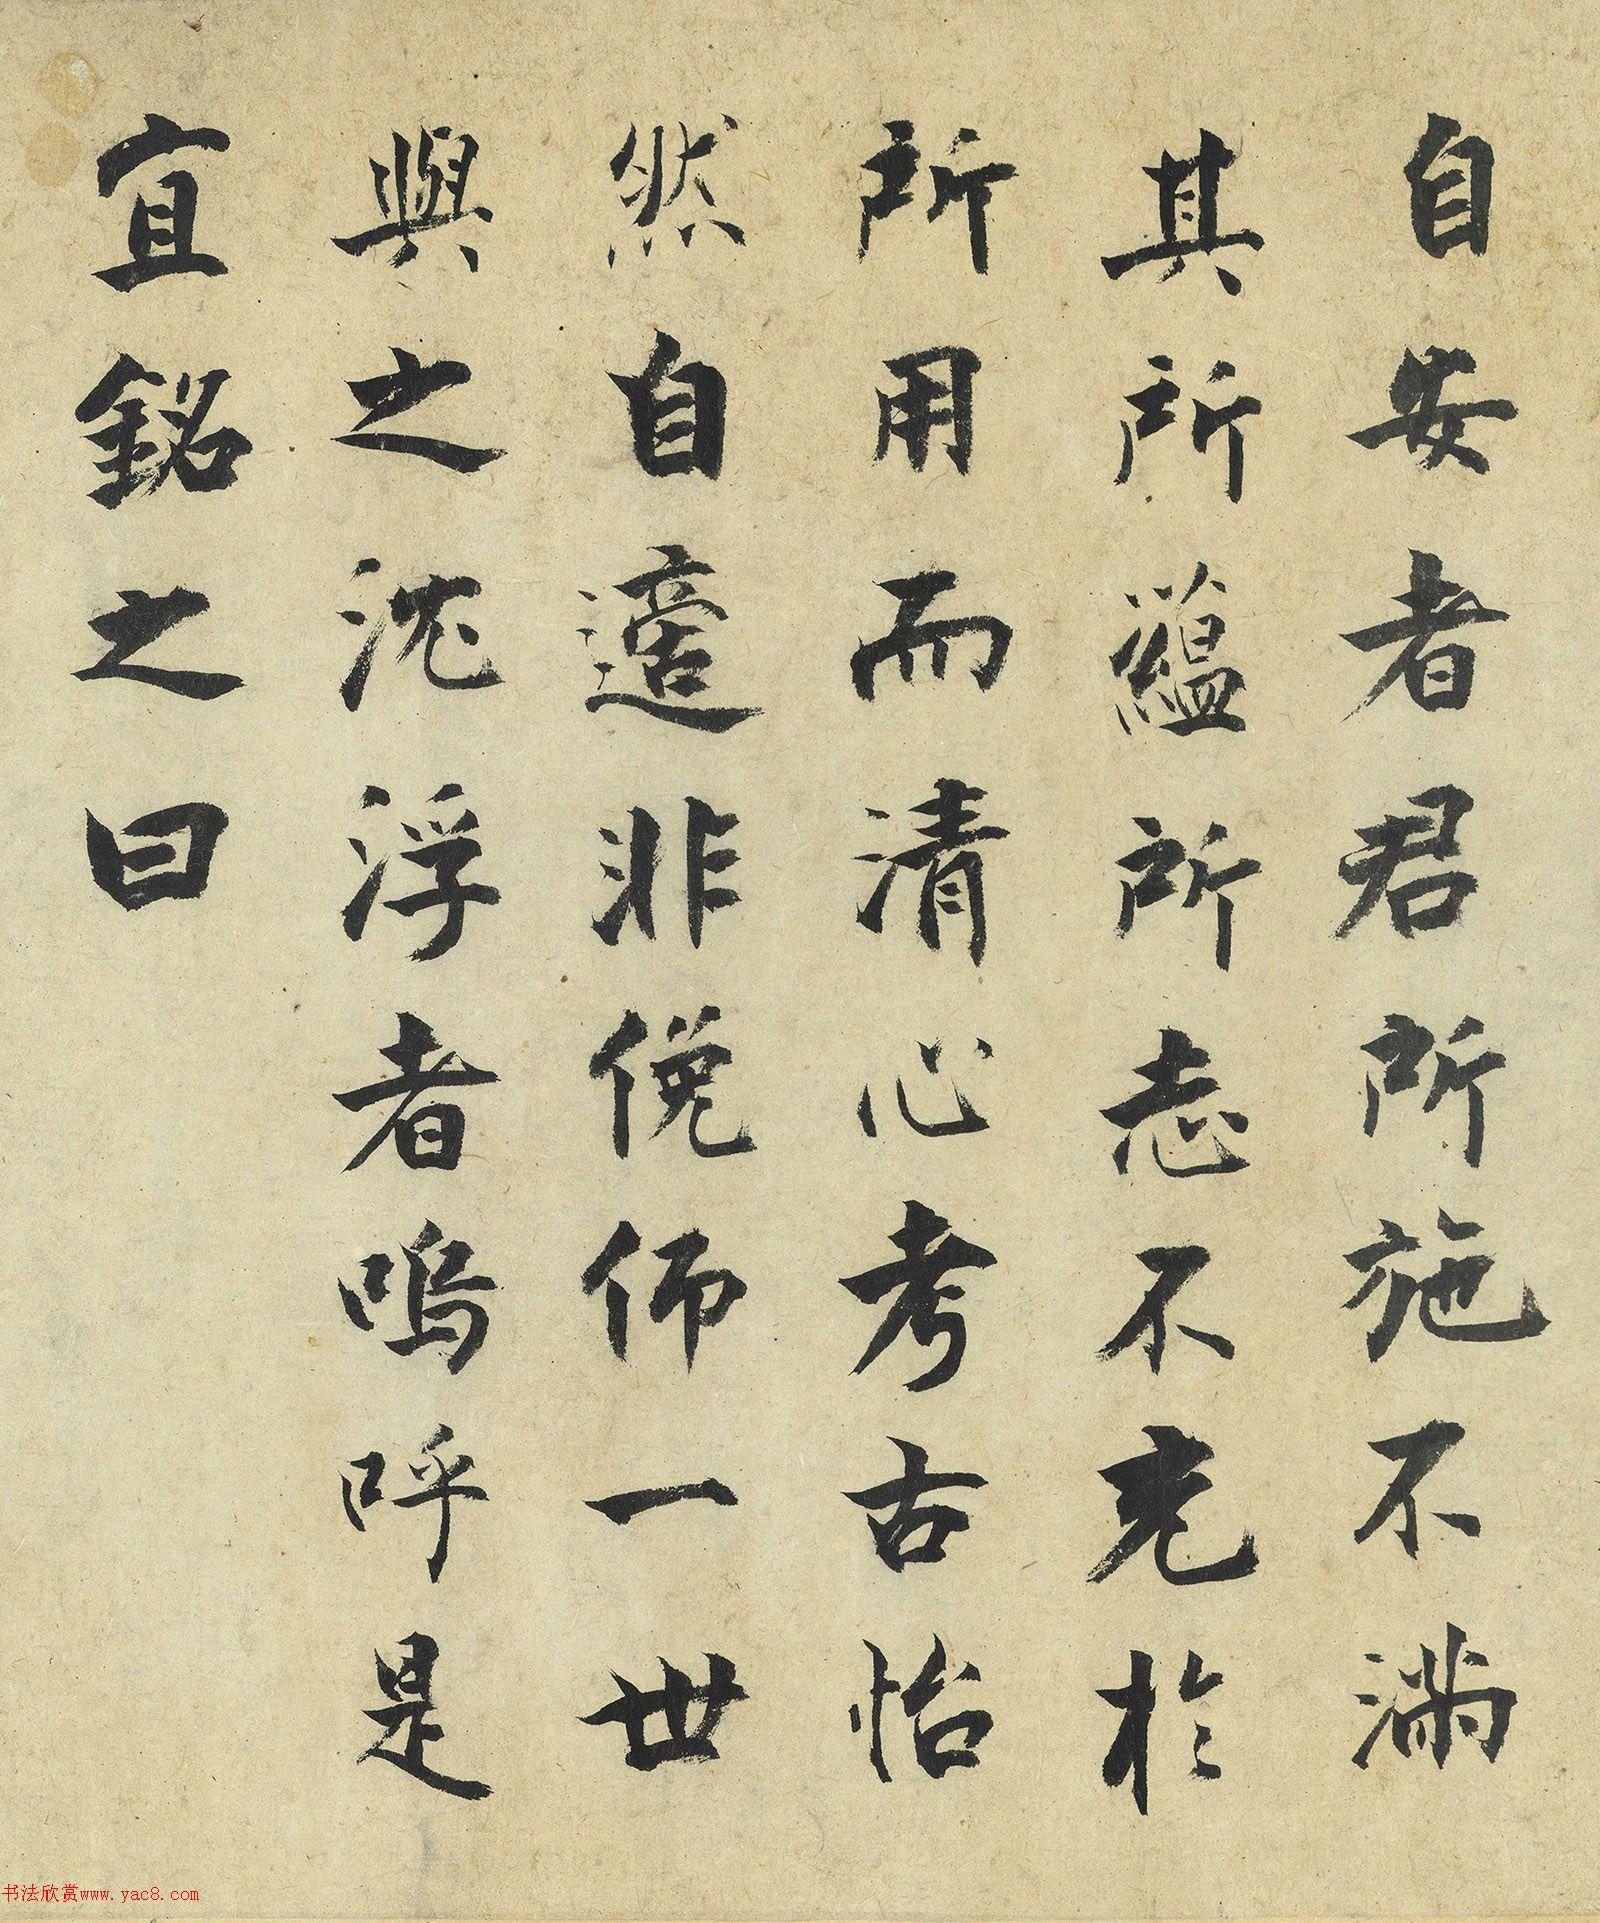 自安者君所施不滿
其所蘊所志不充於
所用而清心考古怡
然自適非俛師一世
與之沈浮者嗚呼是
宜銘之曰
书法欣赏www.yac8.com